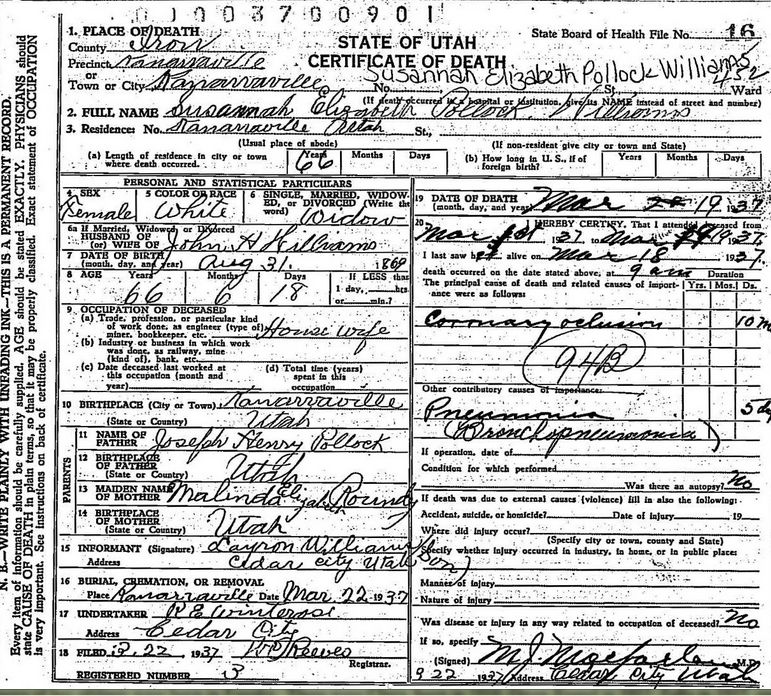 0 1 0 0 3 7 0 0 9 0 1
1. PLACE OF DEATH
County Iron
Precinct Kanarraville
or
Town or City Kanarraville
STATE OF UTAH
CERTIFICATE OF DEATH
State Board of Health File No. 16
Susannah Elizabeth Pollock Williams
No. St. Ward
(If death occurred in a hospital or institution, give its NAME instead of street and number)
2. FULL NAME Susannah Elizabeth Pollock Williams
3. Residence: No. Kanarraville Utah St.,
(Usual place of abode) (If non-resident give city or town and State)
(a) Length of residence in city or town where death occurred. Years 66 Months Days
(b) How long in U. S., if of foreign birth? Years Months Days
PERSONAL AND STATISTICAL PARTICULARS
4. SEX Female
5 COLOR OR RACE White
6 SINGLE, MARRIED, WIDOWED, OR DIVORCED (Write the word) Widow
6a If Married, Widowed or Divorced
HUSBAND OF
(or) WIFE OF John H Williams
7 DATE OF BIRTH
(month, day, and year) Aug 31.
8 AGE Years 66 Months 6 Days 18
If LESS than
1 day, hrs
or min.?
9 OCCUPATION OF DECEASED
(a) Trade, profession, or particular kind
of work done, as engineer (type of)
miner, bookkeeper, etc. House wife
(b) Industry or business in which work
was done, as railway, mine
(kind of), bank, etc.
(c) Date deceased last worked at
this occupation (month and
year)
(d) Total time (years)
spent in this
occupation
10 BIRTHPLACE (City or Town) Kanarraville
(State or Country) Utah
PARENTS
11 NAME OF
FATHER Joseph Henry Pollock
12 BIRTHPLACE
OF FATHER Utah
(State or Country)
13 MAIDEN NAME
OF MOTHER Malinda Elizabeth Roundy
14 BIRTHPLACE
OF MOTHER Utah
(State or Country)
15 INFORMANT (Signature) Layron Williams (Son)
Address Cedar City Utah
16 BURIAL, CREMATION, OR REMOVAL
Place Kanarraville Date Mar. 22 1937
17 UNDERTAKER
Address Cedar City
18 FILED 3. 22 1937 Reeves
Registrar.
REGISTERED NUMBER 3
19 DATE OF DEATH
(month, day, and year) Mar 19 37
20 I HEREBY CERTIFY, That I attended deceased from
Mar 1937 to Mar 19 1937
I last saw h alive on Mar 18 1937.
death occurred on the date stated above, at 9 am
The principal cause of death and related causes of importance were as follows:
Duration
Yrs. Mos. Ds.
Coronary oclusion 10 m
94B
Other contributory causes of importance:
Pneumonia 5 dy
(Bronchopneumonia)
If operation, date of
Condition for which performed
Was there an autopsy? No
If death was due to external causes (violence) fill in also the following:
Accident, suicide, or homicide? Date of injury 19
Where did injury occur?
(Specify city or town, county and State)
Specify whether injury occurred in industry, in home, or in public place:
Manner of injury
Nature of injury
Was disease or injury in any way related to occupation of deceased? No
If so, specify
(Signed) M J Macfarlane M.D.
1937 Address Cedar City Utah
N. B.—WRITE PLAINLY WITH UNFADING INK—THIS IS A PERMANENT RECORD.
Every item of information should be carefully supplied. AGE should be stated EXACTLY. PHYSICIANS should
state CAUSE OF DEATH in plain terms, so that it may be properly classified. Exact statement of OCCUPATION
is very important. See instructions on back of certificate.